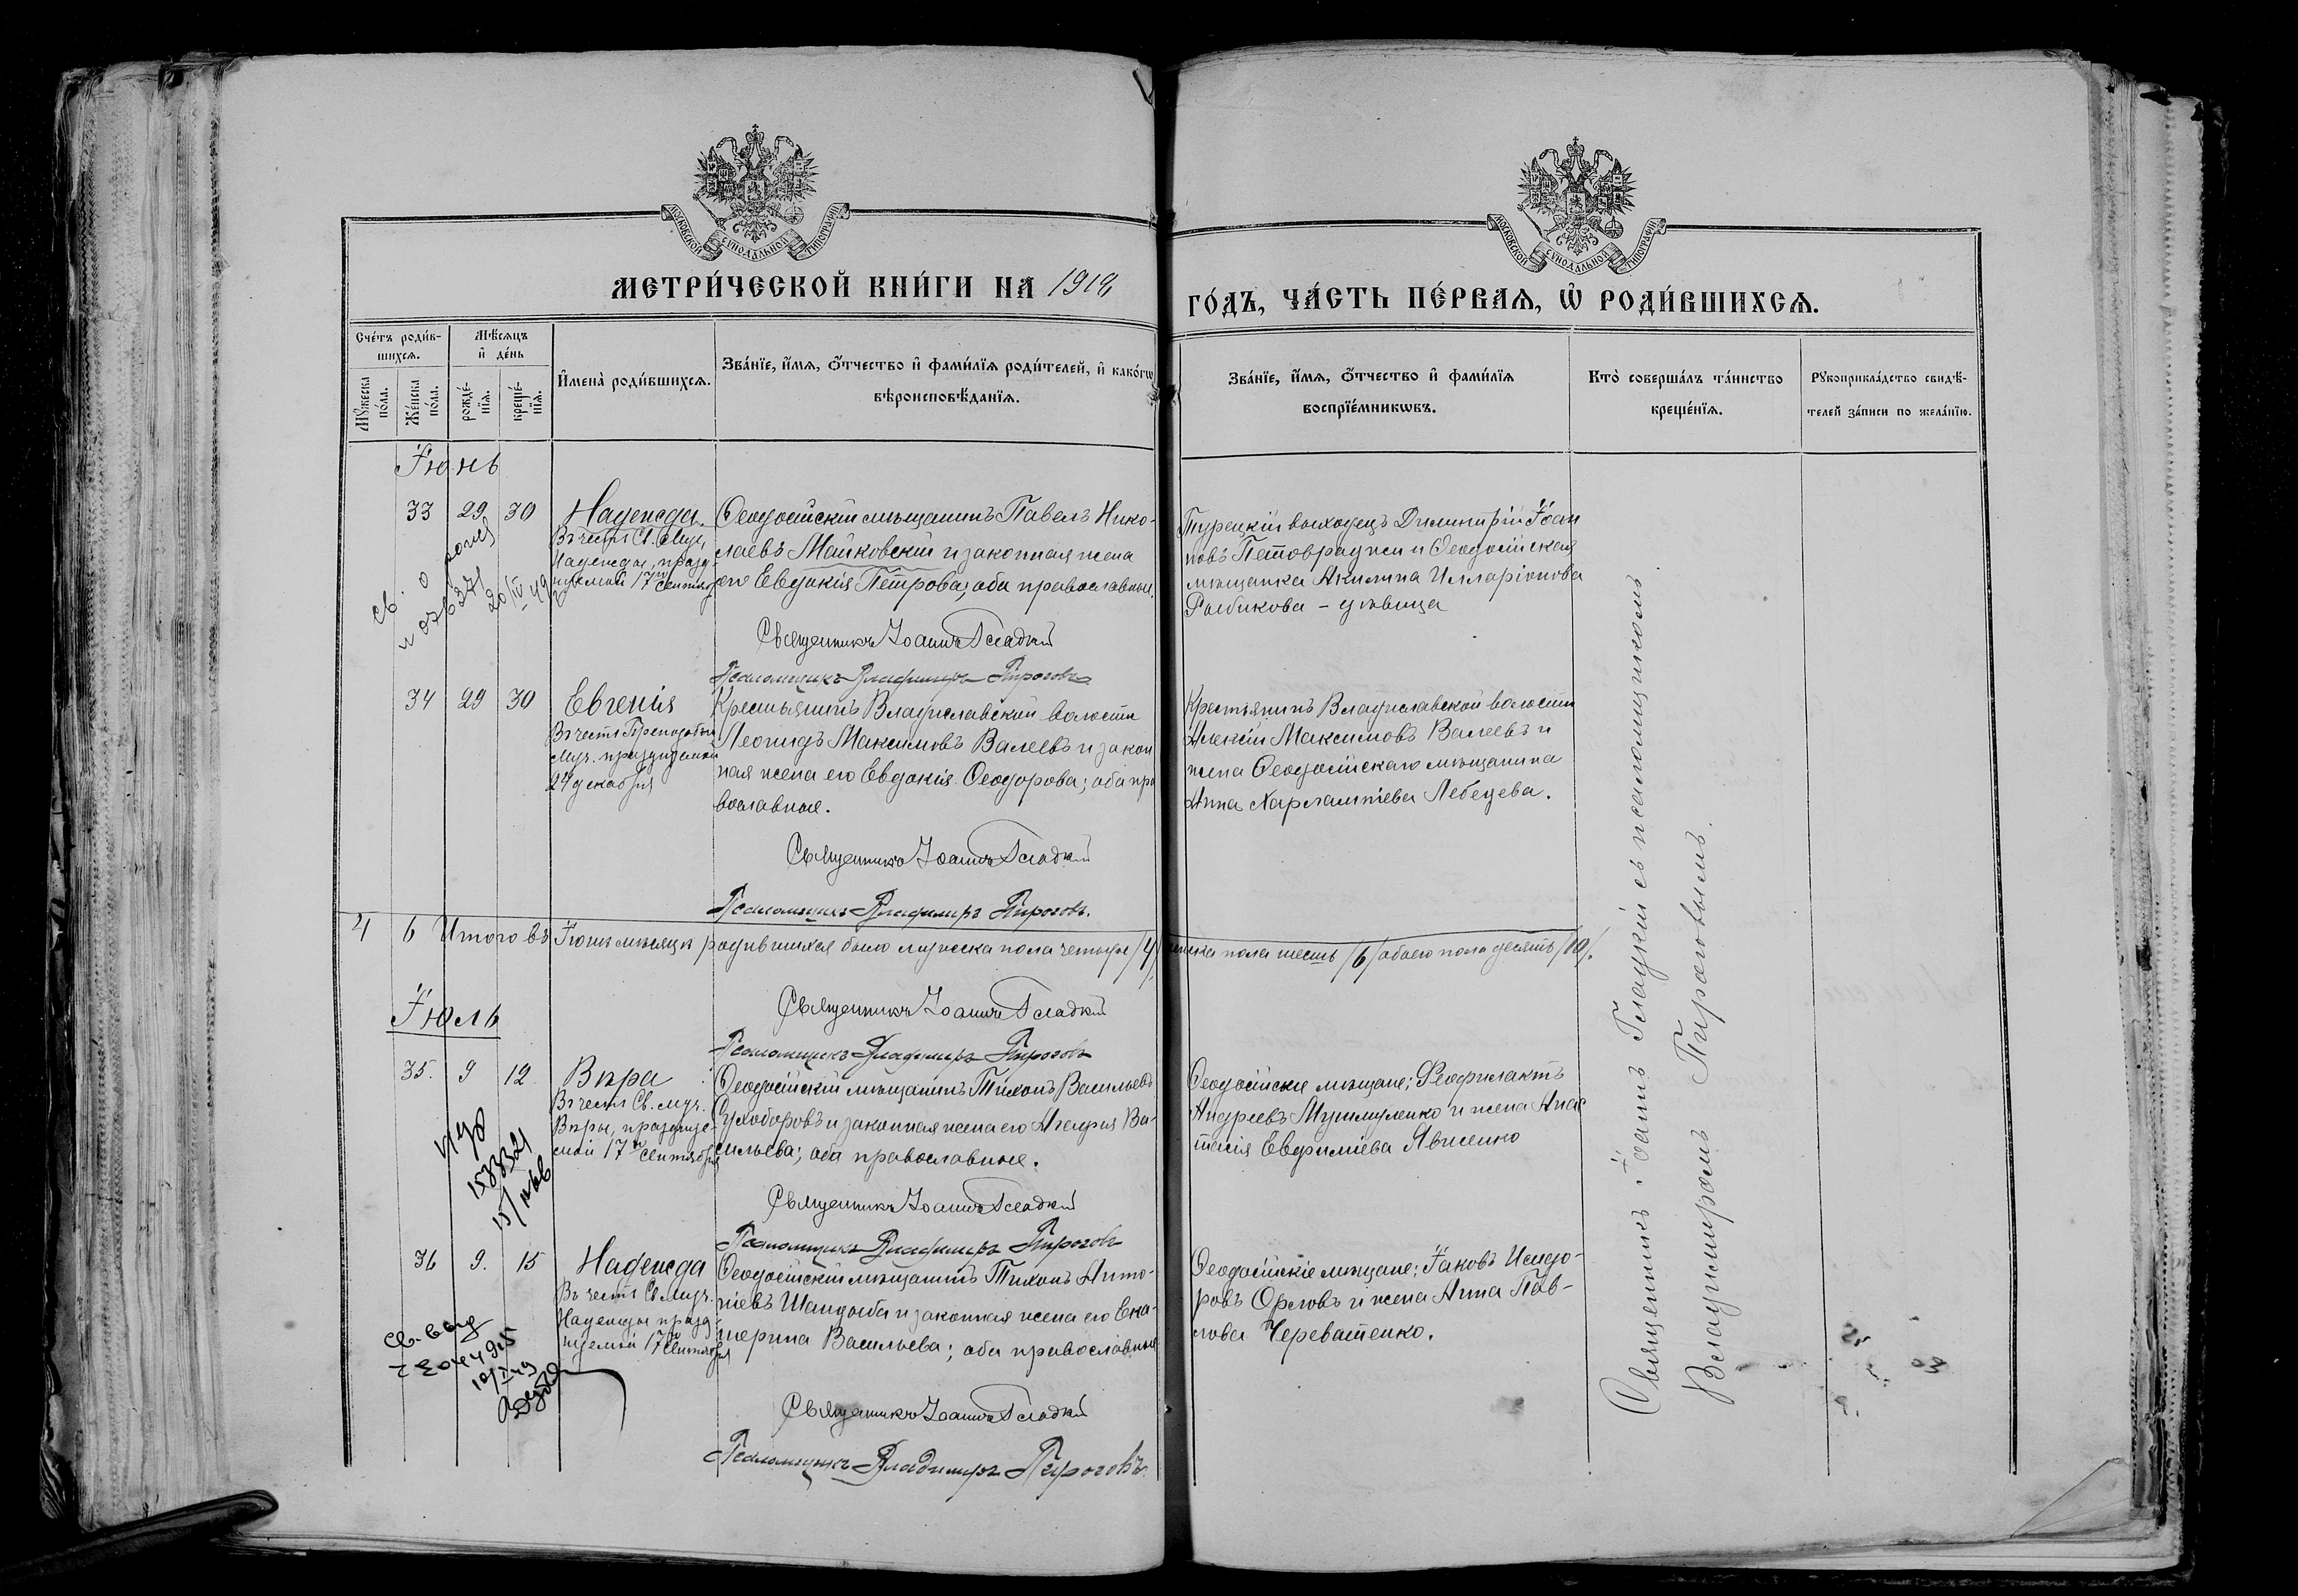 МОСКОВСКОЙ СѴНОДАЛЬНОЙ ТИПОГРАФІИ
МОСКОВСКОЙ СѴНОДАЛЬНОЙ ТИПОГРАФІИ
МЕТРИ́ЧЕСКОЙ КНИ́ГИ НА 1918
ГО́ДЪ, ЧА́СТЬ ПЕ́РВАЯ, Ѡ РОДИ́ВШИХСЯ.
Сче́тъ роди́в-
шихся.
Мѣ́сяцъ
и де́нь
Му́жеска
по́ла.
Же́нска
по́ла.
рожде́-
нїя.
креще́-
нїя.
Имена̀ роди́вшихся.
Зва́нїе, и́мя, о́тчество и фами́лїя роди́телей, и како́гѡ
вѣроисповѣ́данїя.
Зва́нїе, и́мя, о́тчество и фами́лїя
воспрїе́мникѡвъ.
Кто̀ соверша́лъ та́инство
креще́нїя.
Рꙋкоприкла́дство свидѣ́-
телей за́писи по жела́нїю.
Іюнь
33 29 30 Надежда.
Въ честь Св. Муч.
Надежды, празд-
нуемой 17го Сентября
Ѳеодосійскій мѣщанинъ Павелъ Нико-
лаевъ Майковскій и законная жена
его Евдокія Петрова, оба православные.
Священникъ Іоаннъ Гладкій
Псаломщикъ Владимиръ Пироговъ
Турецкій выходецъ Димитрій Іоан
новъ и Ѳеодосійская
мѣщанка Акилина Илларіонова
Рыбикова – дѣвица
34 29 30 Евгенія
Въ честь Преподобной
Муч. празднуемой
24 декабря
Крестьянинъ Владиславской волости
Леонидъ Максимовъ Валеевъ и закон
ная жена его Евдокія Ѳеодорова; оба пра
вославные.
Священникъ Іоаннъ Гладкій
Псаломщикъ Владимиръ Пироговъ.
Крестьянинъ Владиславской волости
Алексій Максимовъ Валеевъ и
жена Ѳеодосійскаго мѣщанина
Анна Харлампіева Лебедева.
4 6 Итого въ Іюнѣ мѣсяцѣ родившихся было мужеска пола четыре /4/, женска пола шесть /6/ обоего пола десять /10/.
Священникъ Іоаннъ Гладкій
Псаломщикъ Владимиръ Пироговъ
Іюль
35. 9 12 Вѣра
Въ честь Св. муч.
Вѣры, праздную-
мой 17го Сентября
Ѳеодосійскій мѣщанинъ Тихонъ Васильевъ
Сухоборовъ и законная жена его Агафія Ва-
сильева; оба православные.
Священникъ Іоаннъ Гладкій
Псаломщикъ Владимиръ Пироговъ
Ѳеодосійскіе мѣщане; Ѳеофилактъ
Андреевъ Мушмуленко и жена Анас
тасія Евфиміева Явненко
36 9. 15 Надежда
Въ честь Св. Муч.
Надежды празд-
нуемой 17го Сентября
Ѳеодосійскій мѣщанинъ Тихонъ Анто-
ніевъ Шандыба и законная жена его Ека-
терина Васильева; оба православные
Священникъ Іоаннъ Гладкій
Псаломщикъ Владимиръ Пироговъ.
Ѳеодосійскіе мѣщане; Іаковъ Исидо-
ровъ Орловъ и жена Анна Пав-
лова Череватенко.
Священникъ Іоаннъ Гладкій съ псаломщикомъ
Владимиромъ Пироговымъ.